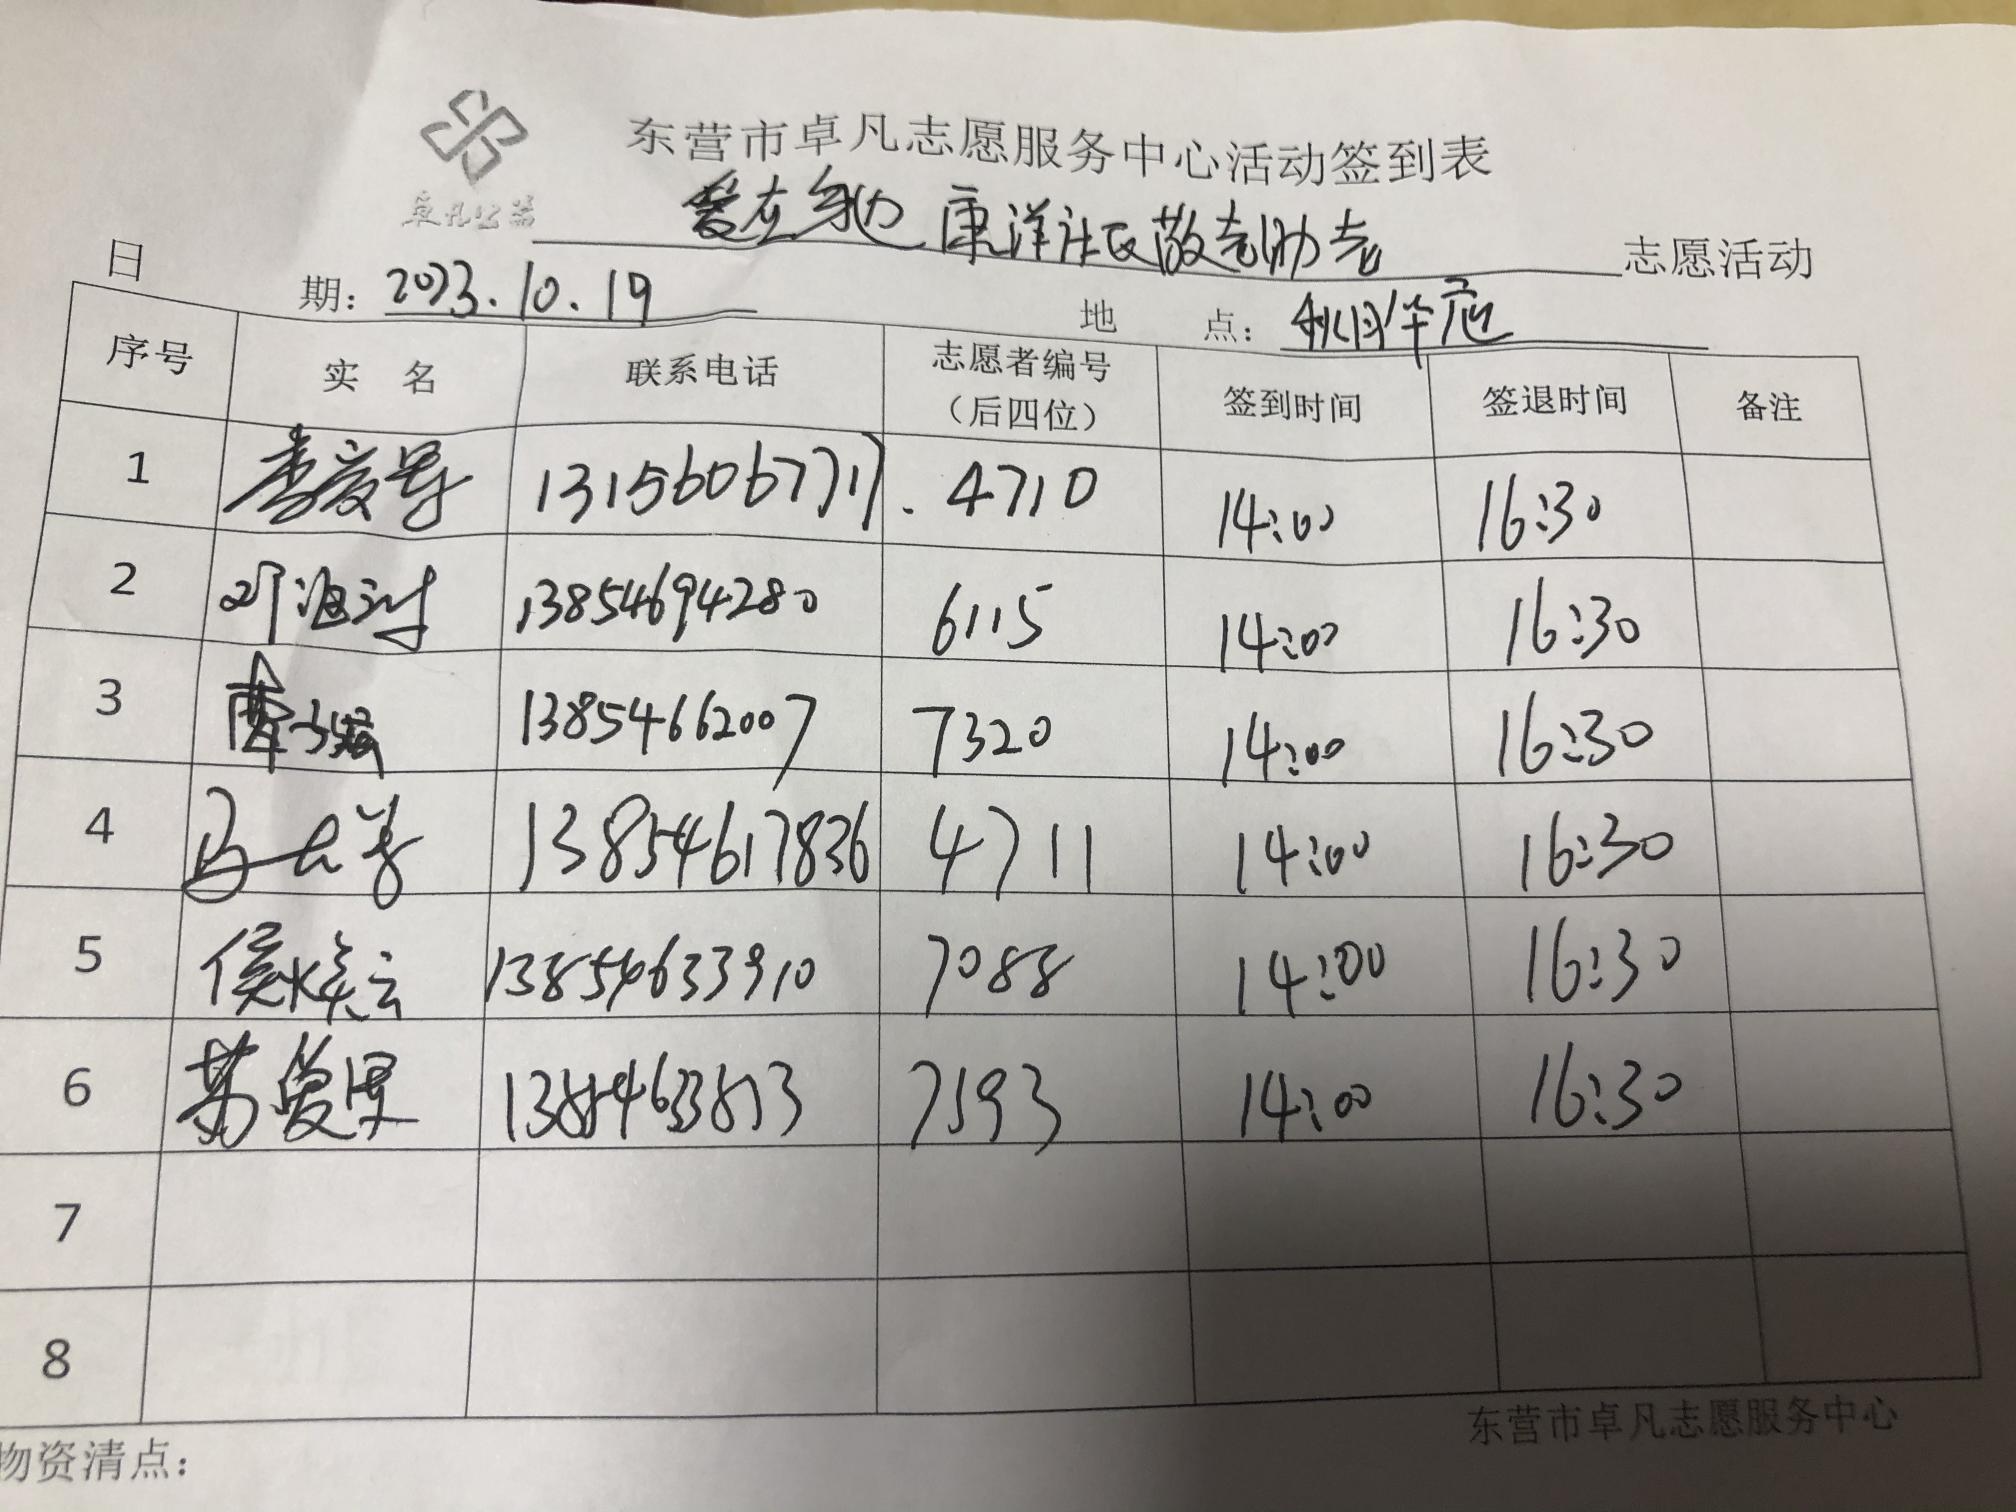 东营市卓凡志愿服务中心活动签到表
卓凡公益
爱在身边 康洋社区敬老助老 志愿活动
日 期：2023.10.19 地 点：
序号 实 名 联系电话 志愿者编号（后四位） 签到时间 签退时间 备注
1 李爱景 13156067717 4710 14:00 16:30
2 邓海涛 13854694280 6115 14:00 16:30
3 13854662007 7320 14:00 16:30
4 13854617836 4711 14:00 16:30
5 侯焕云 13854633910 7088 14:00 16:30
6 7593 14:00 16:30
7
8
东营市卓凡志愿服务中心
物资清点：